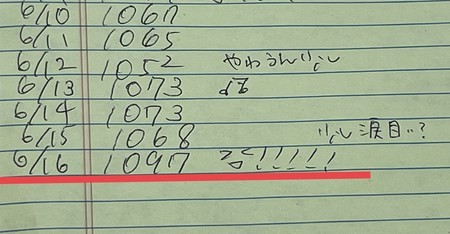 6/10 1067
6/11 1065
6/12 1052 やわうん少し
6/13 1073
6/14 1073
6/15 1068 少し涙目..?
6/16 1097 !!!!!